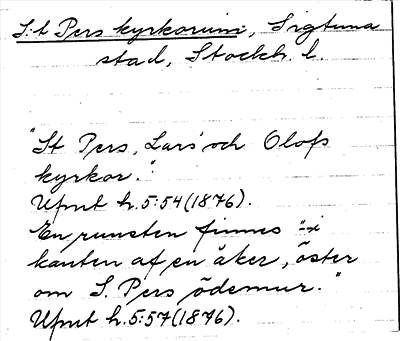 S:t Pers kyrkoruin, Sigtuna
stad, Stockh. l.
"St Pers, Lars' och Olofs
kyrkor."
Ufmt h.5:54(1876).
En runsten finnes "i
kanten af en åker, öster
om S. Pers ödemur."
Ufmt h.5:57(1876).